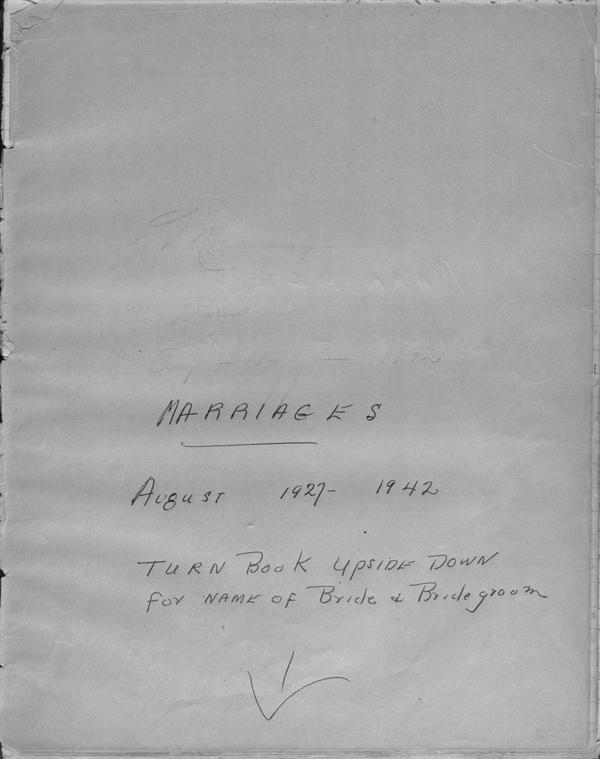 MARRIAGES
August 1927- 1942
TURN BOOK UPSIDE DOWN
for NAME OF Bride & Bridegroom